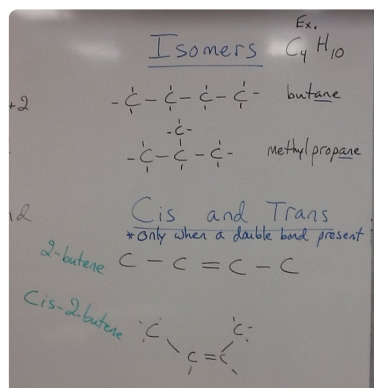 Ex.
Isomers C4H10
+2
-C-C-C-C- butane
-C-
-C-C-C- methylpropane
Cis and Trans
*only when a double bond present
2-butene C-C=C-C
Cis-2-butene
C C
C=C